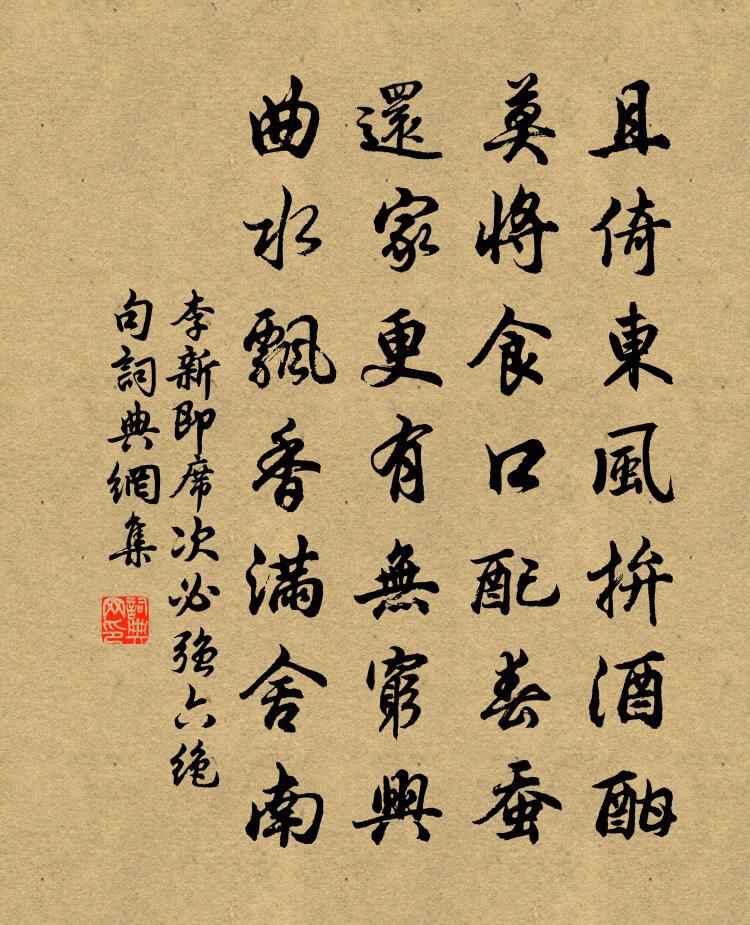 且倚東風拼酒酣
莫將食口配春蚕
還家更有無窮興
曲水飄香滿舍南
李新即席次必強六绝
句詞典網集
詞典
网印